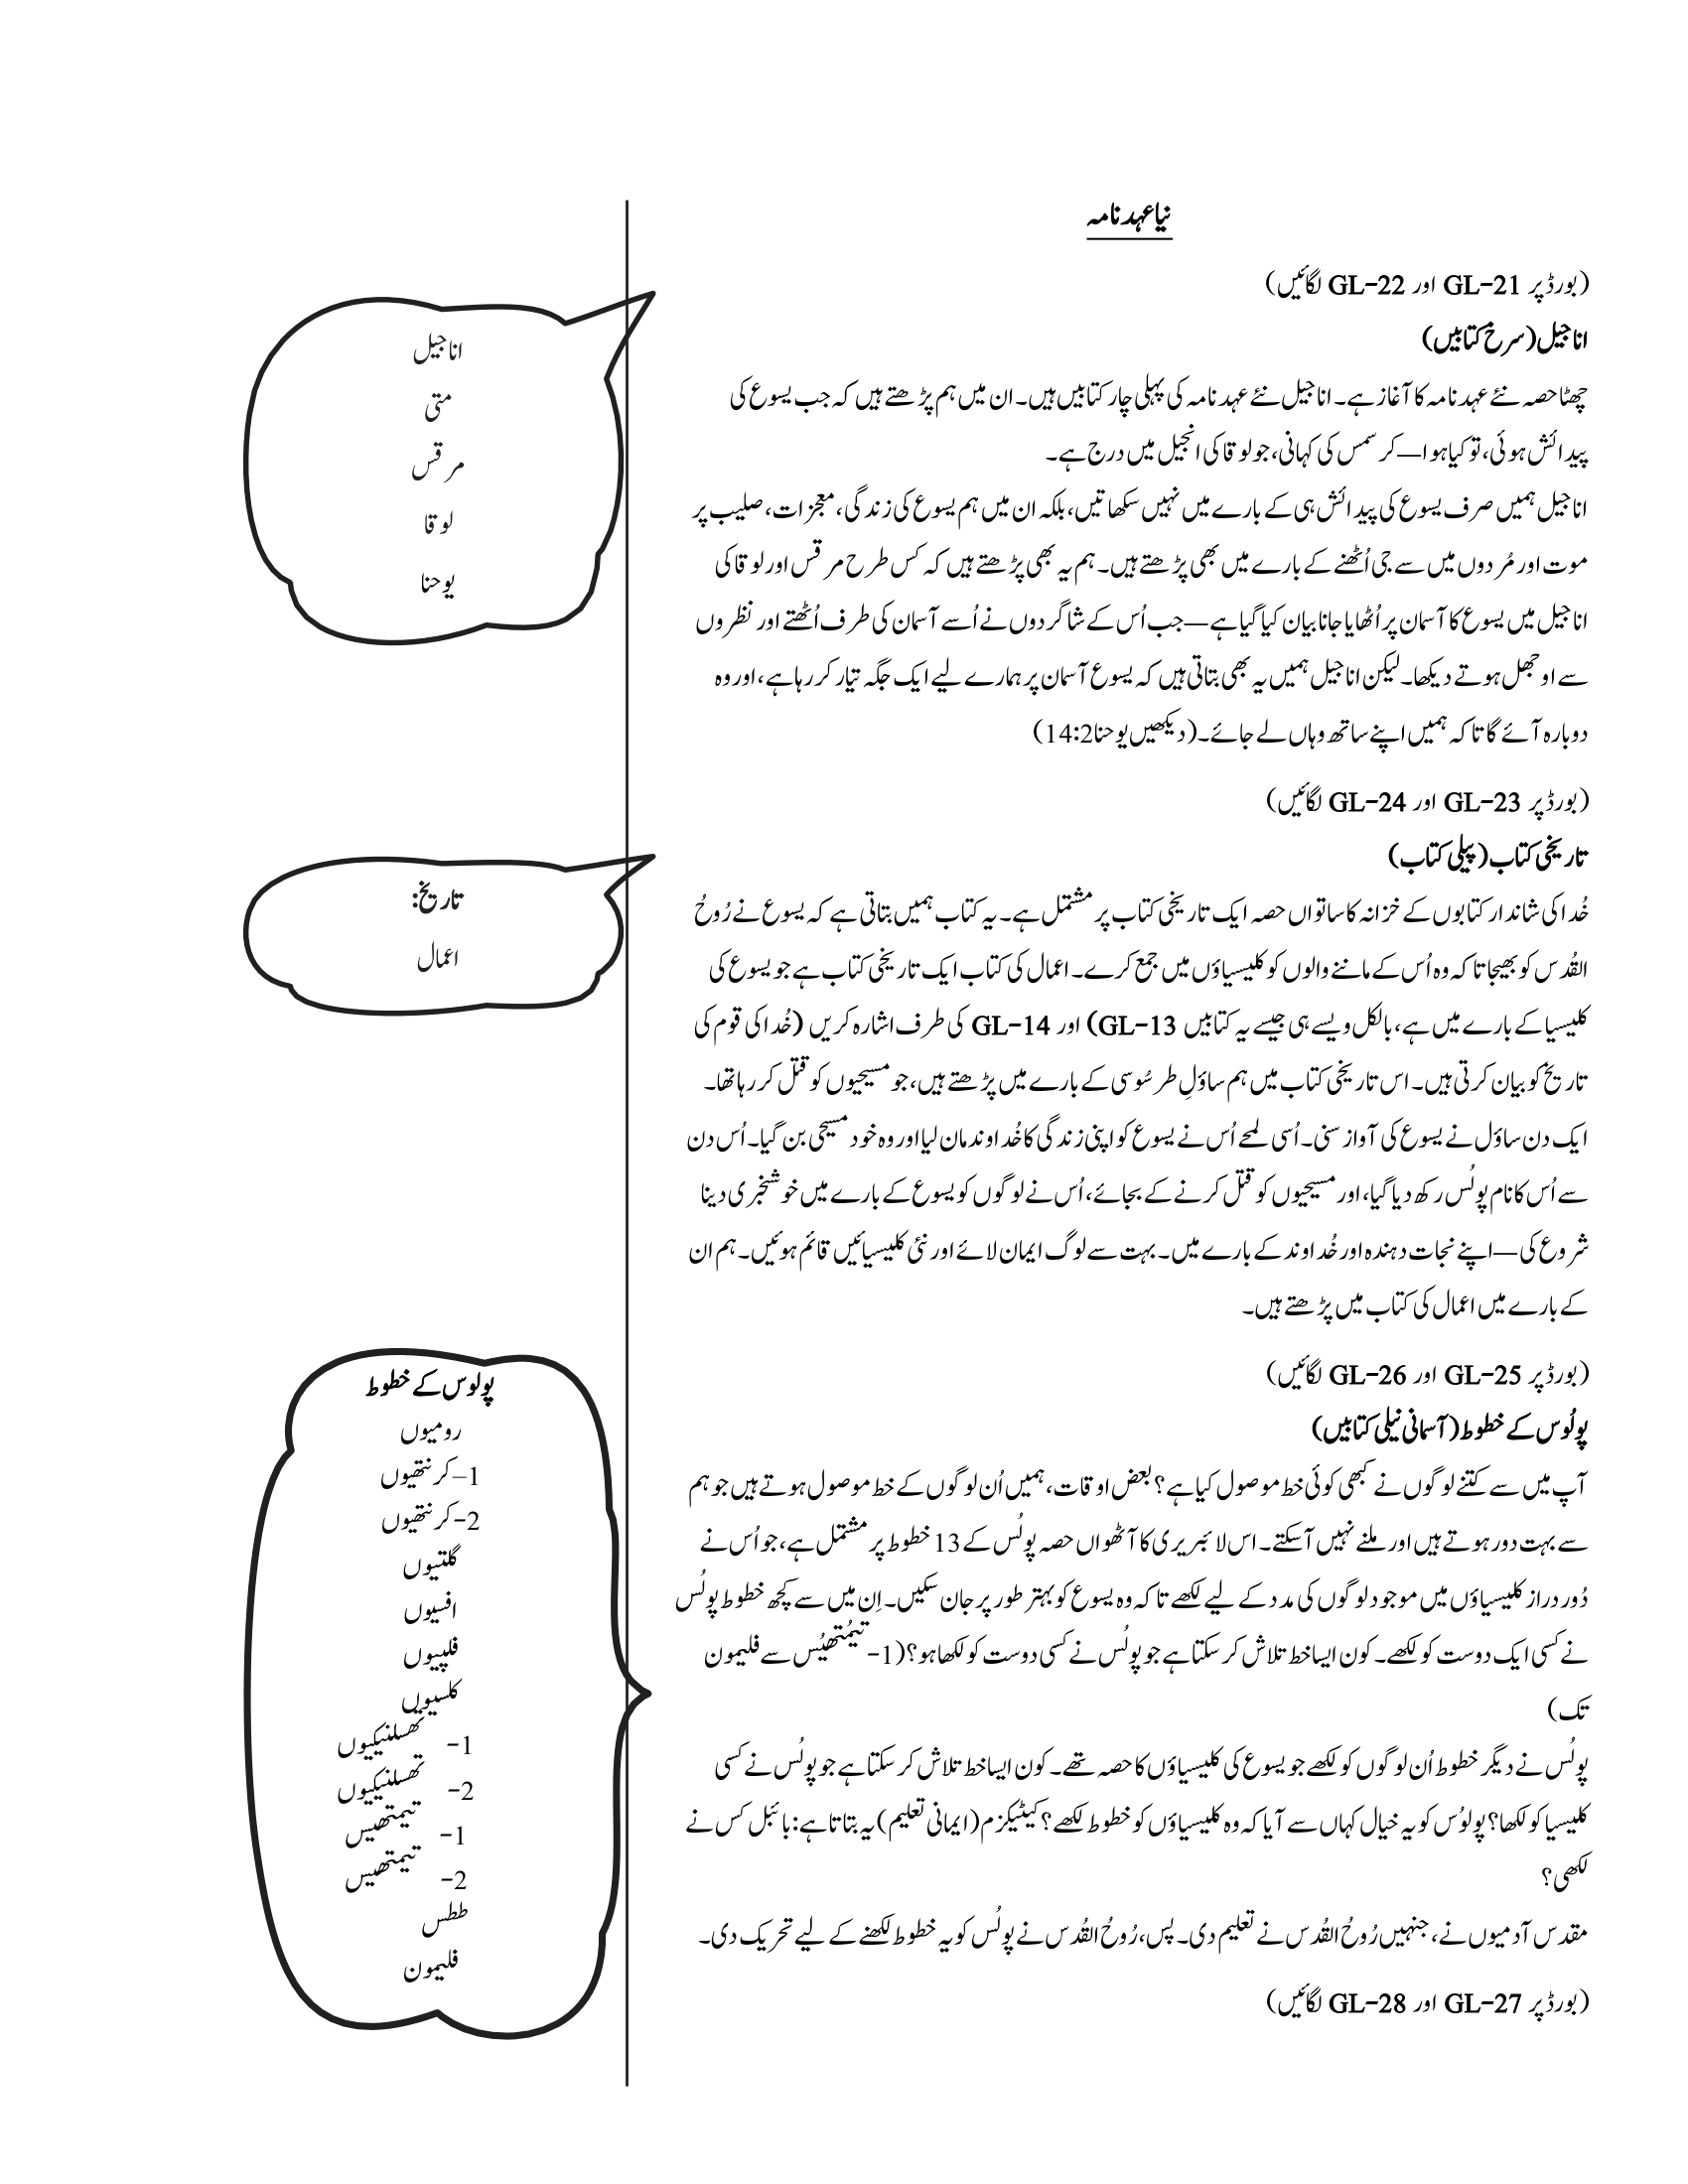 نیا عہد نامہ
(بورڈ پر GL-21 اور GL-22 لگائیں)
اناجیل (سرخ کتابیں)
چھٹا حصہ نئے عہد نامہ کا آغاز ہے۔ اناجیل نئے عہد نامہ کی پہلی چار کتابیں ہیں۔ ان میں ہم پڑھتے ہیں کہ جب یسوع کی
پیدائش ہوئی، تو کیا ہوا—کرسمس کی کہانی، جو لوقا کی انجیل میں درج ہے۔
اناجیل ہمیں صرف یسوع کی پیدائش ہی کے بارے میں نہیں سکھاتیں، بلکہ ان میں ہم یسوع کی زندگی، معجزات، صلیب پر
موت اور مُردوں میں سے جی اُٹھنے کے بارے میں بھی پڑھتے ہیں۔ ہم یہ بھی پڑھتے ہیں کہ کس طرح مرقس اور لوقا کی
اناجیل میں یسوع کا آسمان پر اُٹھایا جانا بیان کیا گیا ہے—جب اُس کے شاگردوں نے اُسے آسمان کی طرف اُٹھتے اور نظروں
سے اوجھل ہوتے دیکھا۔ لیکن اناجیل ہمیں یہ بھی بتاتی ہیں کہ یسوع آسمان پر ہمارے لیے ایک جگہ تیار کر رہا ہے، اور وہ
دوبارہ آئے گا تاکہ ہمیں اپنے ساتھ وہاں لے جائے۔ (دیکھیں یوحنا 14:2)
(بورڈ پر GL-23 اور GL-24 لگائیں)
تاریخی کتاب (پیلی کتاب)
خُدا کی شاندار کتابوں کے خزانہ کا ساتواں حصہ ایک تاریخی کتاب پر مشتمل ہے۔ یہ کتاب ہمیں بتاتی ہے کہ یسوع نے رُوحُ
القُدس کو بھیجا تاکہ وہ اُس کے ماننے والوں کو کلیسیاؤں میں جمع کرے۔ اعمال کی کتاب ایک تاریخی کتاب ہے جو یسوع کی
کلیسیا کے بارے میں ہے، بالکل ویسے ہی جیسے یہ کتابیں GL-13) اور GL-14 کی طرف اشارہ کریں (خُدا کی قوم کی
تاریخ کو بیان کرتی ہیں۔ اس تاریخی کتاب میں ہم ساؤلِ طرسُوسی کے بارے میں پڑھتے ہیں، جو مسیحیوں کو قتل کر رہا تھا۔
ایک دن ساؤل نے یسوع کی آواز سنی۔ اُسی لمحے اُس نے یسوع کو اپنی زندگی کا خُداوند مان لیا اور وہ خود مسیحی بن گیا۔ اُس دن
سے اُس کا نام پولُس رکھ دیا گیا، اور مسیحیوں کو قتل کرنے کے بجائے، اُس نے لوگوں کو یسوع کے بارے میں خوشخبری دینا
شروع کی—اپنے نجات دہندہ اور خُداوند کے بارے میں۔ بہت سے لوگ ایمان لائے اور نئی کلیسیائیں قائم ہوئیں۔ ہم ان
کے بارے میں اعمال کی کتاب میں پڑھتے ہیں۔
(بورڈ پر GL-25 اور GL-26 لگائیں)
پولُوس کے خطوط (آسمانی نیلی کتابیں)
آپ میں سے کتنے لوگوں نے کبھی کوئی خط موصول کیا ہے؟ بعض اوقات، ہمیں اُن لوگوں کے خط موصول ہوتے ہیں جو ہم
سے بہت دور ہوتے ہیں اور ملنے نہیں آسکتے۔ اس لائبریری کا آٹھواں حصہ پولُس کے 13 خطوط پر مشتمل ہے، جو اُس نے
دُور دراز کلیسیاؤں میں موجود لوگوں کی مدد کے لیے لکھے تاکہ وہ یسوع کو بہتر طور پر جان سکیں۔ اِن میں سے کچھ خطوط پولُس
نے کسی ایک دوست کو لکھے۔ کون ایسا خط تلاش کر سکتا ہے جو پولُس نے کسی دوست کو لکھا ہو؟ (1- تیمُتھیُس سے فلیمون
تک)
پولُس نے دیگر خطوط اُن لوگوں کو لکھے جو یسوع کی کلیسیاؤں کا حصہ تھے۔ کون ایسا خط تلاش کر سکتا ہے جو پولُس نے کسی
کلیسیا کو لکھا؟ پولوُس کو یہ خیال کہاں سے آیا کہ وہ کلیسیاؤں کو خطوط لکھے؟ کیٹیکزم (ایمانی تعلیم) یہ بتاتا ہے: بائبل کس نے
لکھی؟
مقدس آدمیوں نے، جنہیں رُوحُ القُدس نے تعلیم دی۔ پس، رُوحُ القُدس نے پولُس کو یہ خطوط لکھنے کے لیے تحریک دی۔
(بورڈ پر GL-27 اور GL-28 لگائیں)
اناجیل
متی
مرقس
لوقا
یوحنا
تاریخ:
اعمال
پولوس کے خطوط
رومیوں
1–کرنتھیوں
2-کرنتھیوں
گلتیوں
افسیوں
فلپیوں
کلسیوں
1- تھسلنیکیوں
2- تھسلنیکیوں
1- تیمتھیس
2- تیمتھیس
ططس
فلیمون